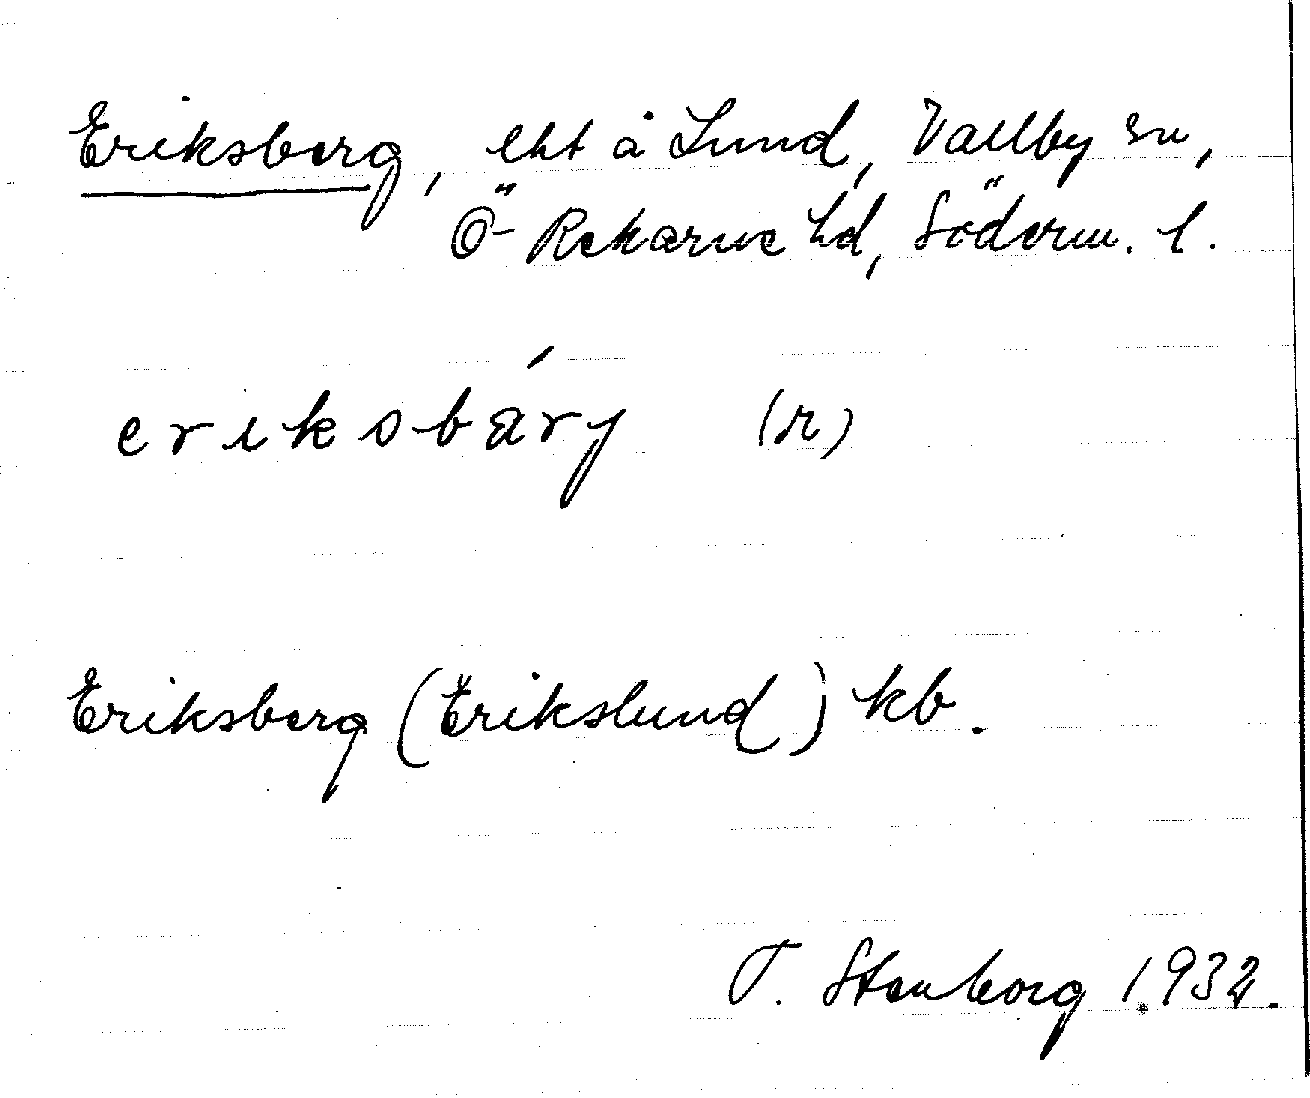 Eriksberg, lht å Lund, Vallby sn,
Ö-Rekarne hd, Söderm. l.
eriksbárj (n)
Eriksberg (Erikslund) kb.
T. Stenborg 1932.